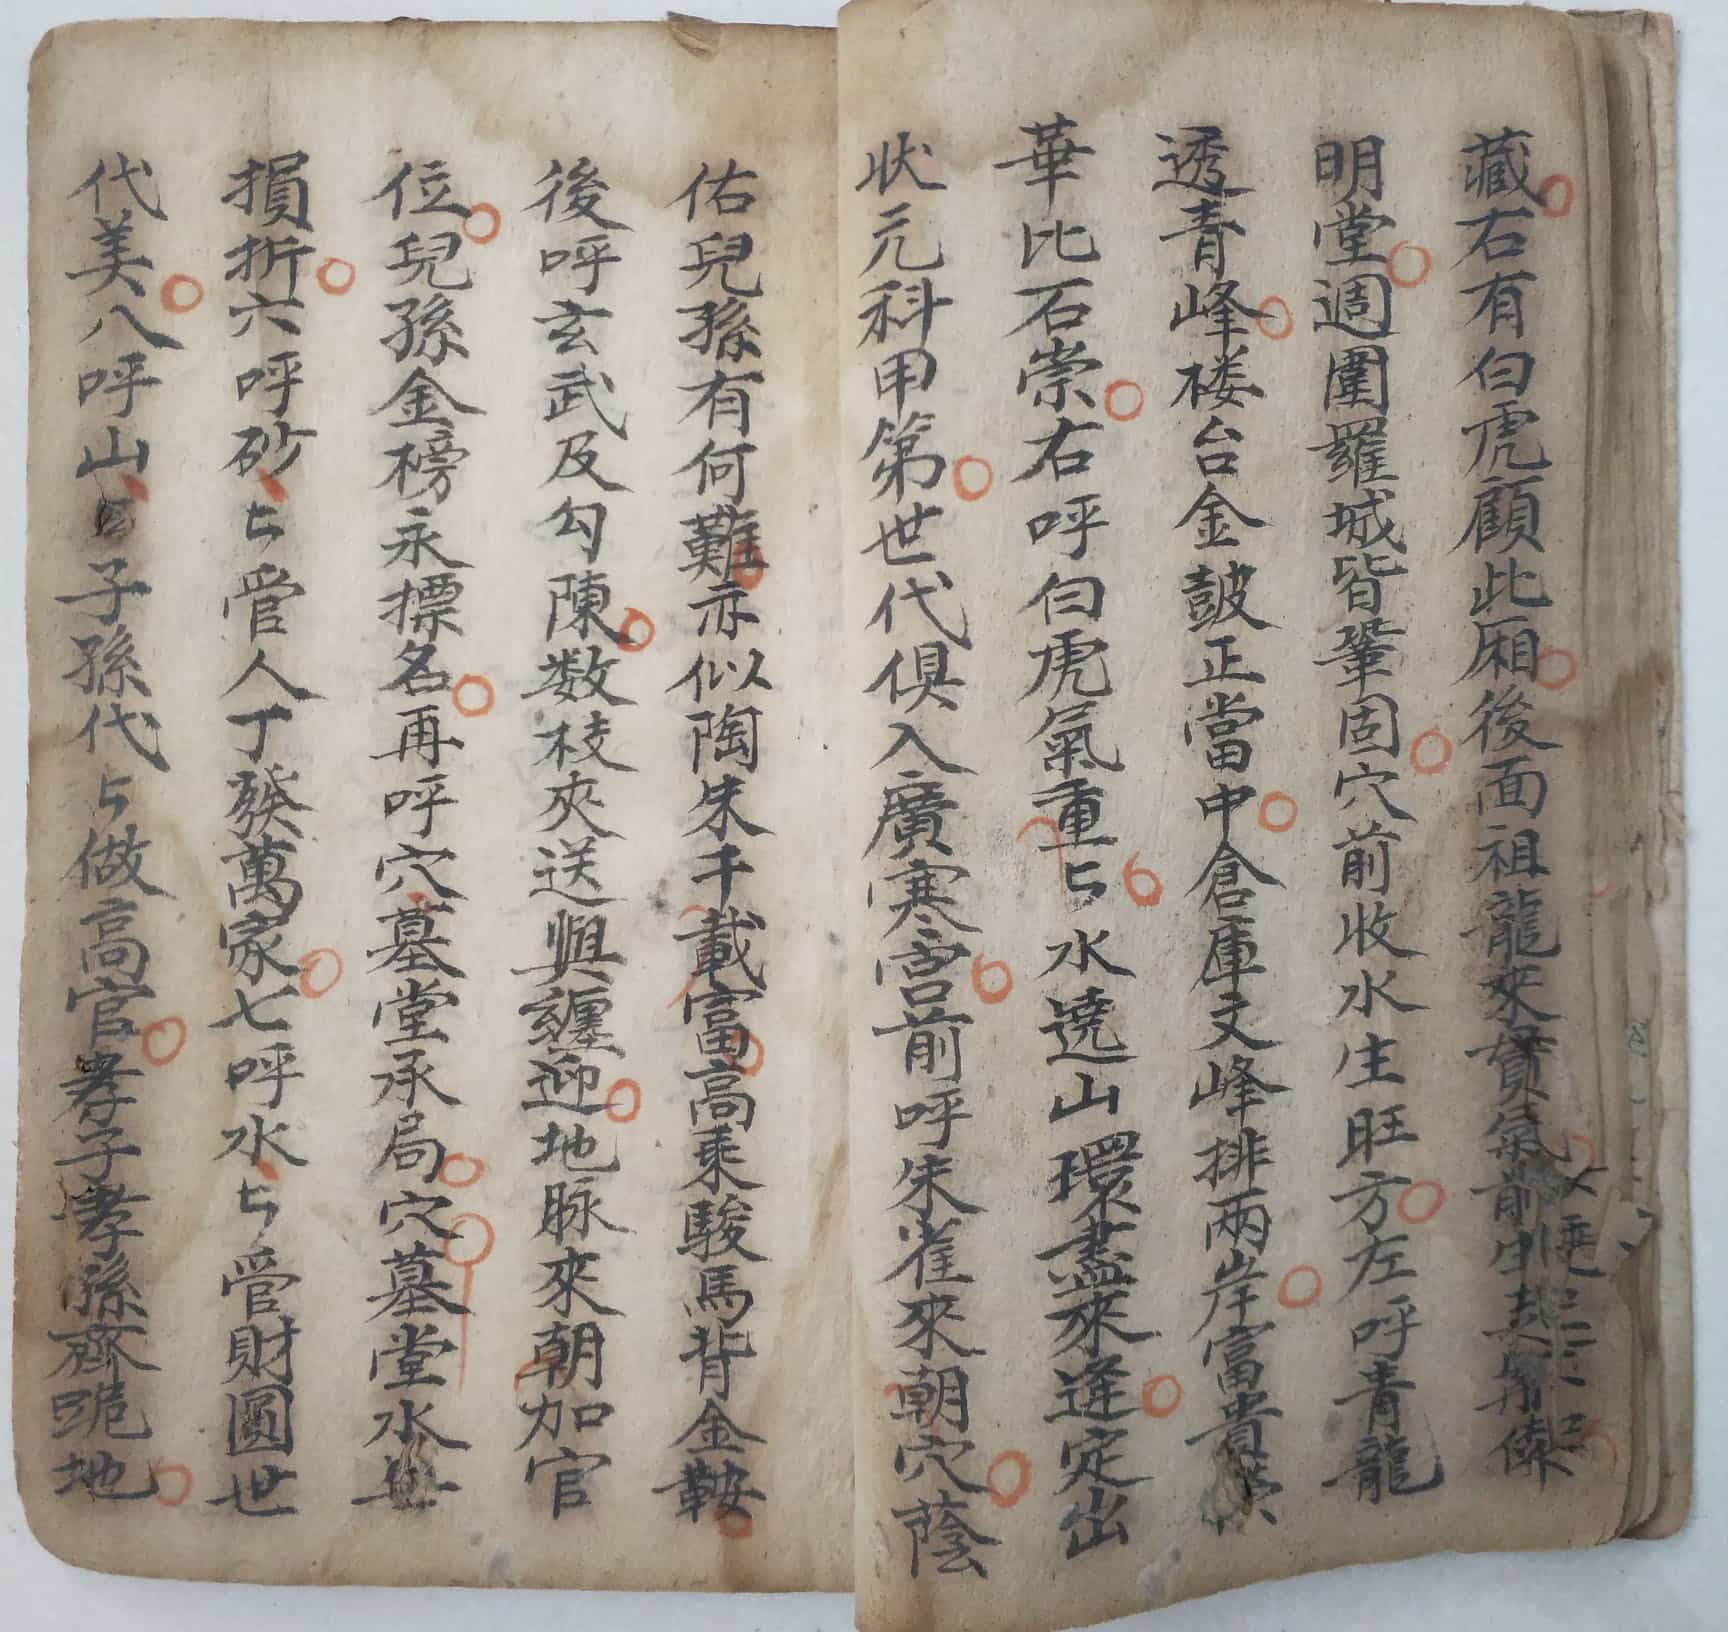 藏右有白虎顧此厢後面祖龍來貢氣前
明堂週圍羅城皆鞏固穴前收水生旺方左呼青龍
透青峰楼台金皷正當中倉庫文峰排兩岸富貴榮
華比石崇右呼白虎氣重〻水遶山環盡來逢定出
状元科甲第世代俱入廣寒宮前呼朱雀來朝穴蔭
佑兒孫有何難亦似陶朱千載富高乘駿馬背金鞍
後呼玄武及勾陳数枝夾送與纏迎地脉來朝加官
位兒孫金榜永摽名再呼穴墓堂承局穴墓堂水無
損折六呼砂〻管人丁發萬家七呼水〻管財圓世
代美八呼山子孫代〻做高官孝子孝孫齊跪地